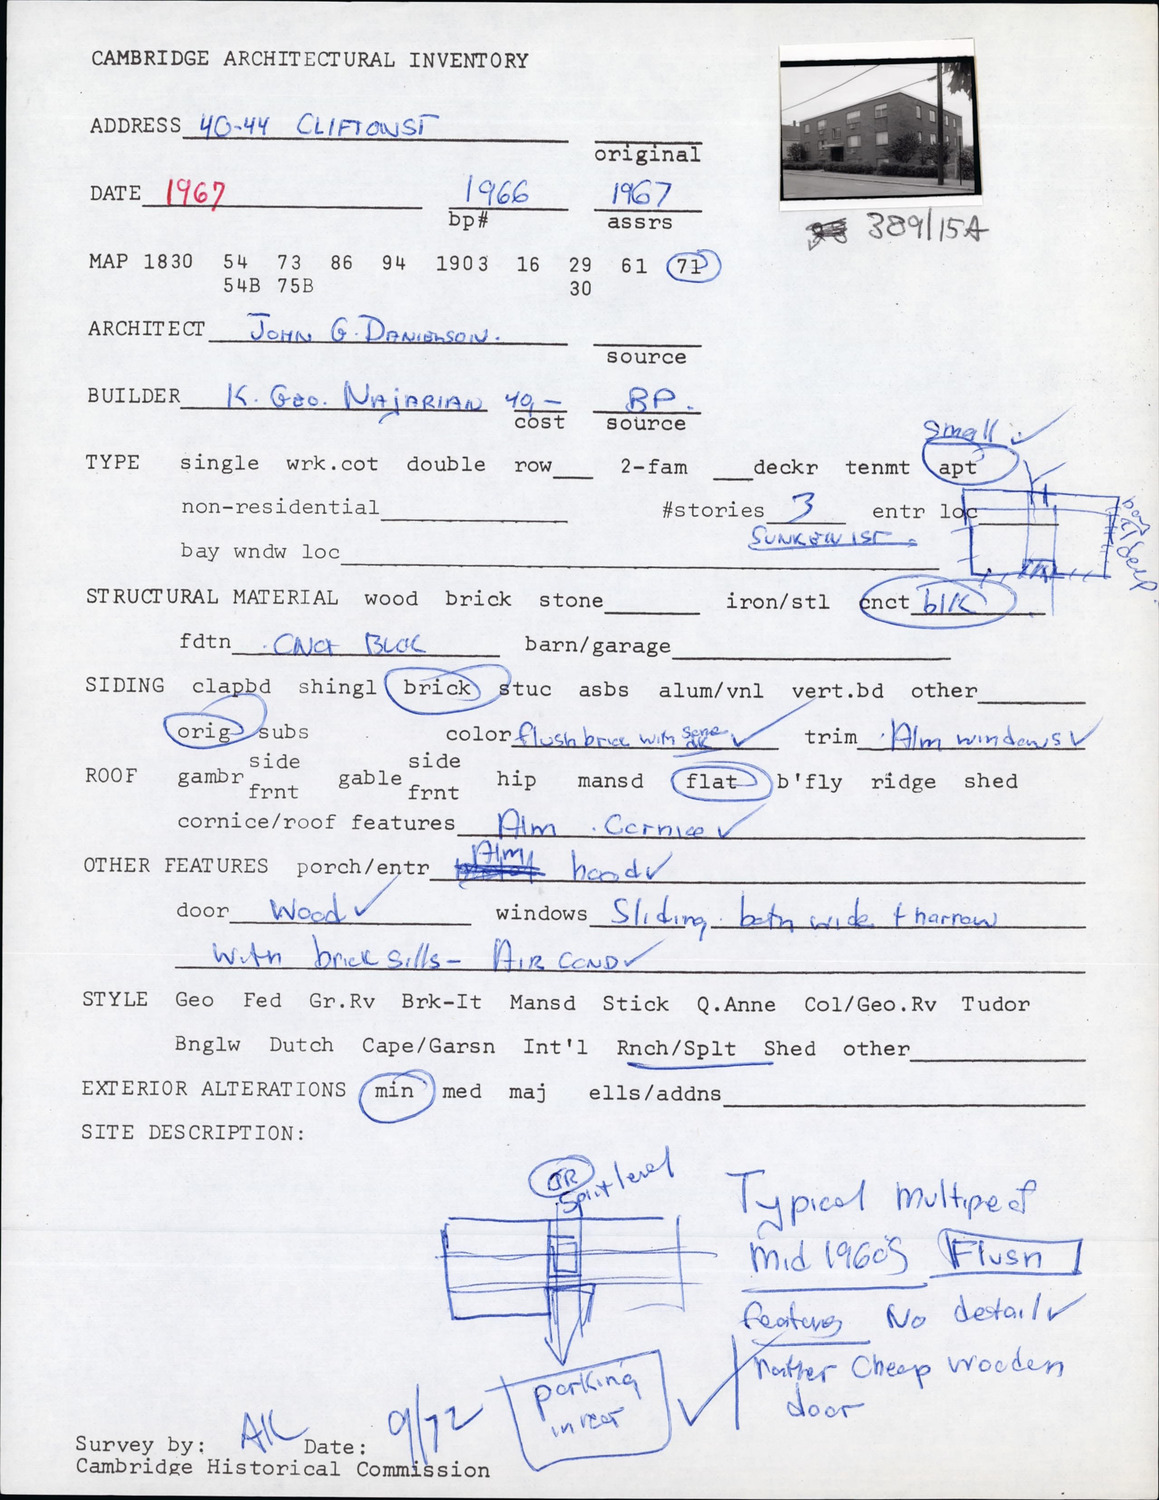 CAMBRIDGE ARCHITECTURAL INVENTORY
ADDRESS 40-44 CLIFTON ST
original
DATE 1967 1966 1967
bp# assrs
389/15A
MAP 1830 54 73 86 94 1903 16 29 61 71
54B 75B 30
ARCHITECT JOHN G. DANIELSON.
source
BUILDER K. GEO. NAJARIAN 49,- BP.
cost source
small
TYPE single wrk.cot double row 2-fam deckr tenmt apt
non-residential #stories 3 entr loc
SUNKEN 1ST.
bay wndw loc
STRUCTURAL MATERIAL wood brick stone iron/stl cnct blk
fdtn CNCT BLCK barn/garage
SIDING clapbd shingl brick stuc asbs alum/vnl vert.bd other
orig subs color flush brick with some dk trim Alm windows
ROOF gambr side frnt gable side frnt hip mansd flat b'fly ridge shed
cornice/roof features Alm. Cornice
OTHER FEATURES porch/entr Alm hood
door Wood windows Sliding. both wide + narrow
with brick sills - AIR COND
STYLE Geo Fed Gr.Rv Brk-It Mansd Stick Q.Anne Col/Geo.Rv Tudor
Bnglw Dutch Cape/Garsn Int'l Rnch/Splt Shed other
EXTERIOR ALTERATIONS min med maj ells/addns
SITE DESCRIPTION:
OR
Split level
Typical multiple of
mid 1960s Flush
features No detail
rather cheap wooden
door
parking
in rear
Survey by: AK Date: 9/72
Cambridge Historical Commission